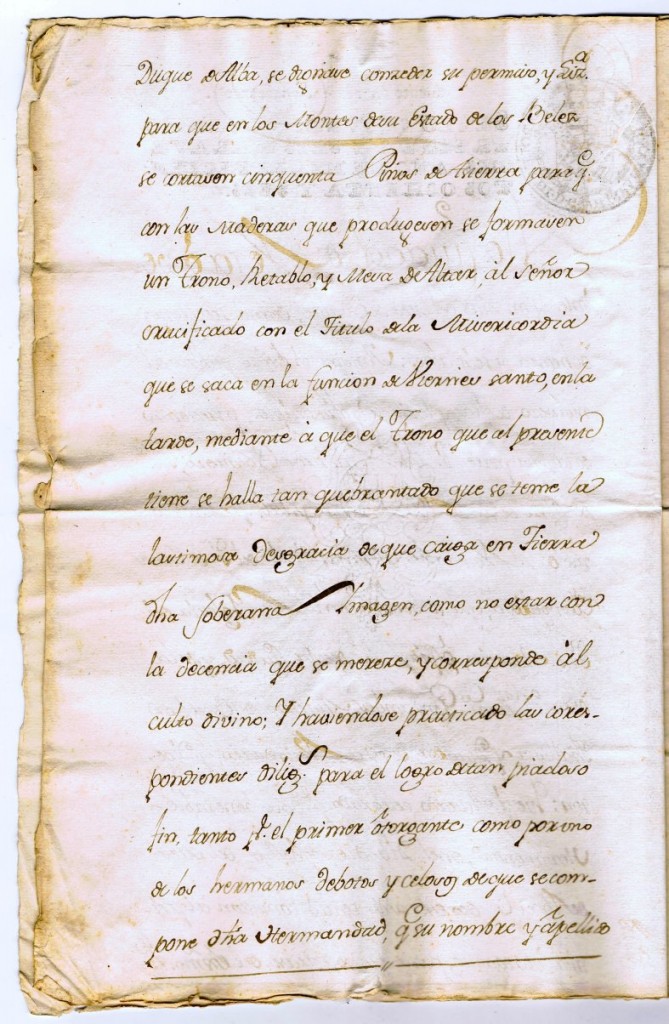 Duque de Alba, se dignase conzeder su permiso, y Liz.ª
para que en los Montes de su Estado de los Belez
se cortasen cinquenta Pinos de tierra para q.
con las Maderas que produgesen se formasen
un Trono, Retablo, y Mesa de Altar, àl Señor
crucificado con el Titulo de la Misericordia
que se saca en la funcion de Viernes santo, en la
tarde, mediante à que el Trono que al presente
tiene se halla tan quebrantado que se teme la
lastimosa desgracia de que caiga en Tierra
dha Soberana Imagen, como no estar con
la decencia que se mereze, y corresponde àl
culto divino; Y haviendose practicado las cores-
pondientes dilig.s para el logro de tan piadoso
fin, tanto p.r el primer otorgante como por uno
de los hermanos debotos y celosos de que se com-
pone dha Hermandad, q su nombre y apellido